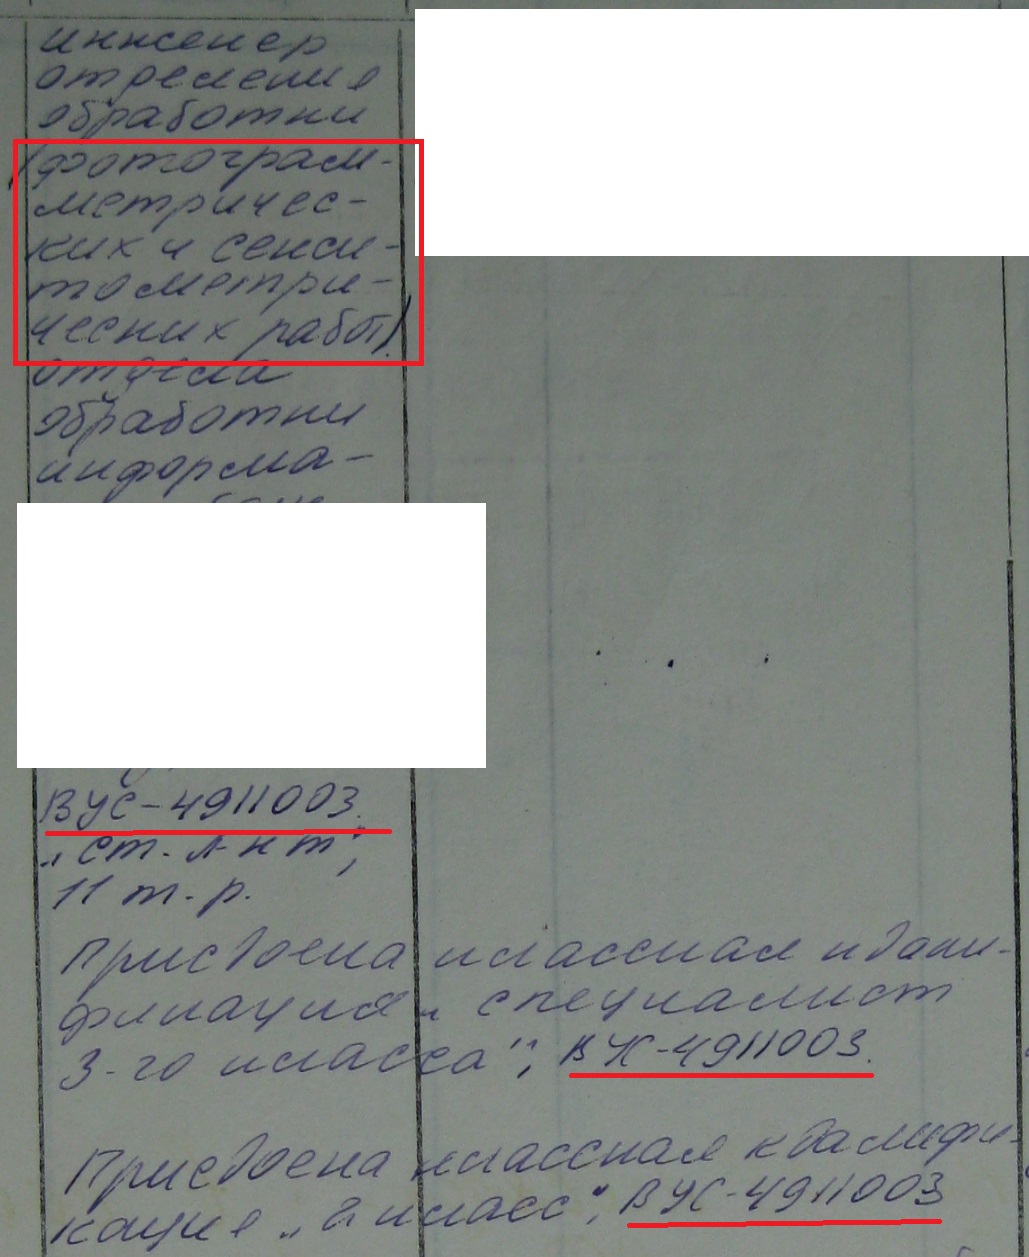 инженер
отделения
обработки
(фотограм-
метричес-
ких и сенси-
тометри-
ческих работ)
отдела
обработки
информа-
ВУС-4911003.
„ст. л-нт",
11 т.р.
Присвоена классная квали-
фикация „специалист
3-го класса", ВУС-4911003.
Присвоена классная квалифи-
кация „2 класс", ВУС-4911003